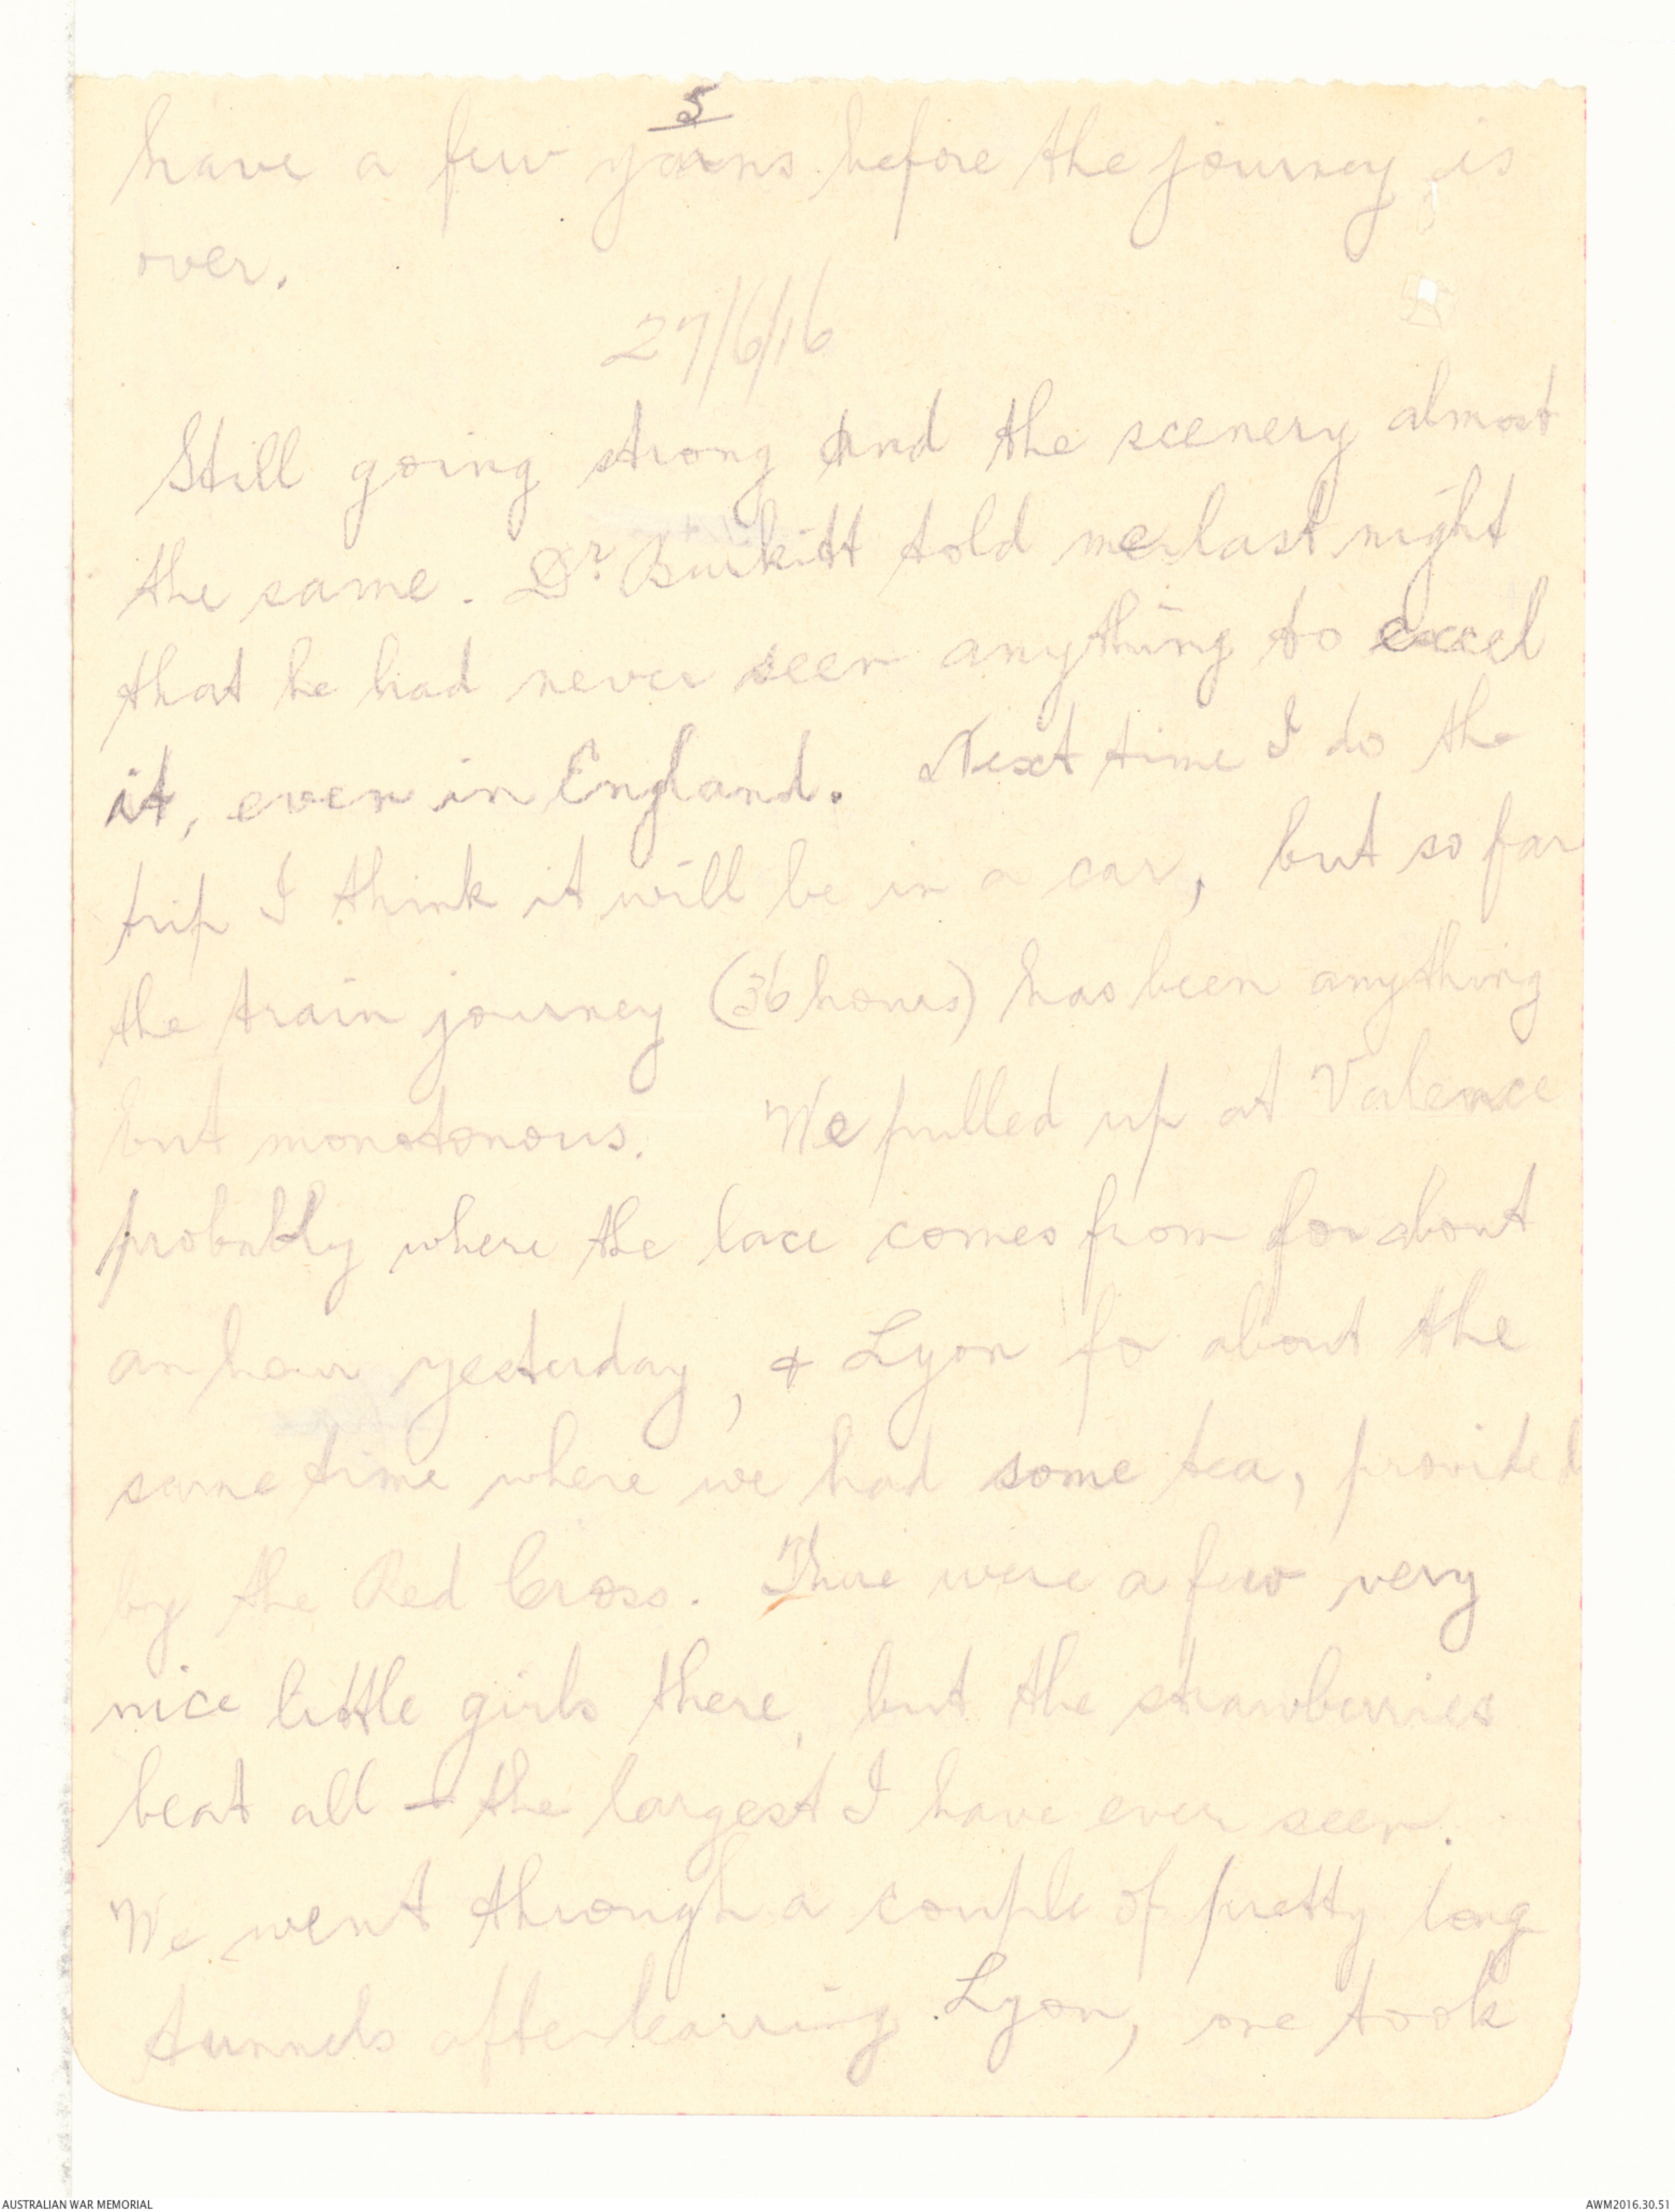 5
have a few yarns before the journey is
over.
27/6/16
Still going strong and the scenery almost
the same. Dr Burkitt told me last night
that he had never seen anything to excel
it, even in England. Next time I do the
trip I think it will be in a car, but so far
the train journey (36 hours) has been anything
but monotonous. We pulled up at Valence
probably where the lace comes from for about
an hour yesterday, & Lyon fo about the
same time where we had some tea, provided
by the Red Cross. There were a few very
nice little girls there, but the strawberries
beat all - the largest I have ever seen.
We went through a couple of pretty long
tunnels after leaving Lyon, one took
AUSTRALIAN WAR MEMORIAL
AWM2016.30.51